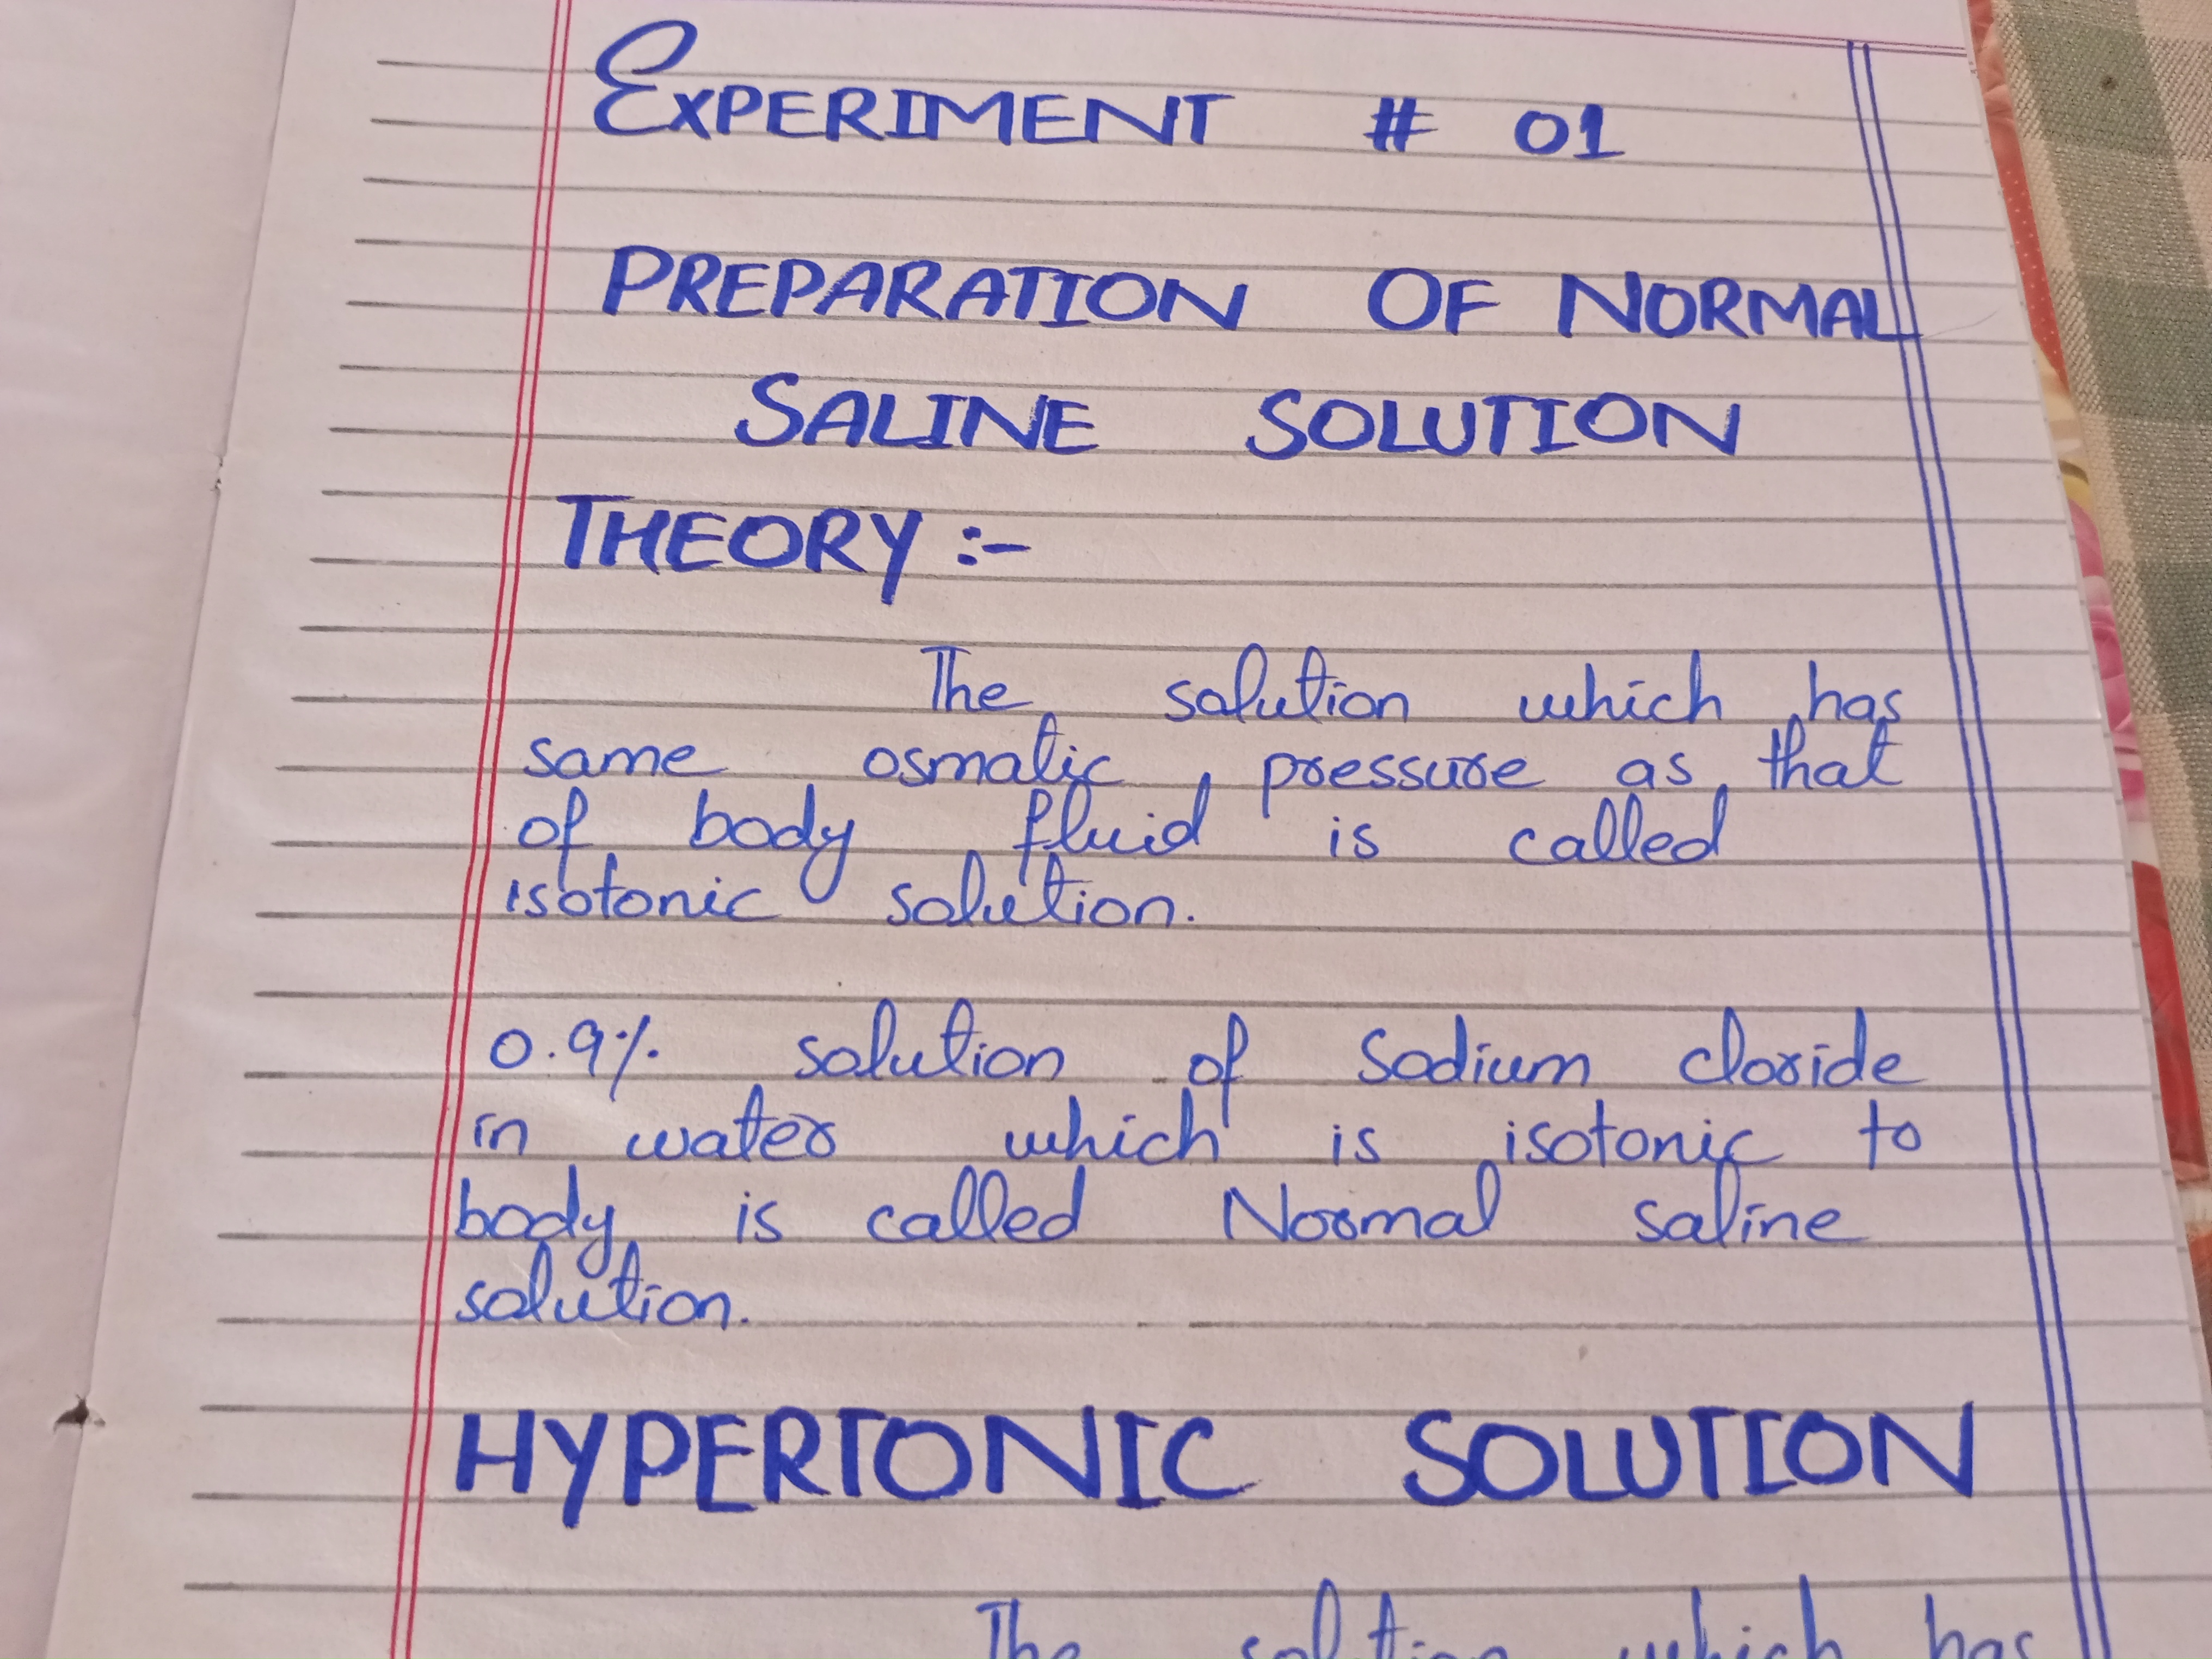 EXPERIMENT # 01
PREPARATION OF NORMAL
SALINE SOLUTION
THEORY :-
The solution which has
same osmatic pressure as that
of body fluid is called
isotonic solution.
0.9% solution of Sodium cloride
in water which is isotonic to
body is called Normal saline
solution.
HYPERTONIC SOLUTION
The solution which has